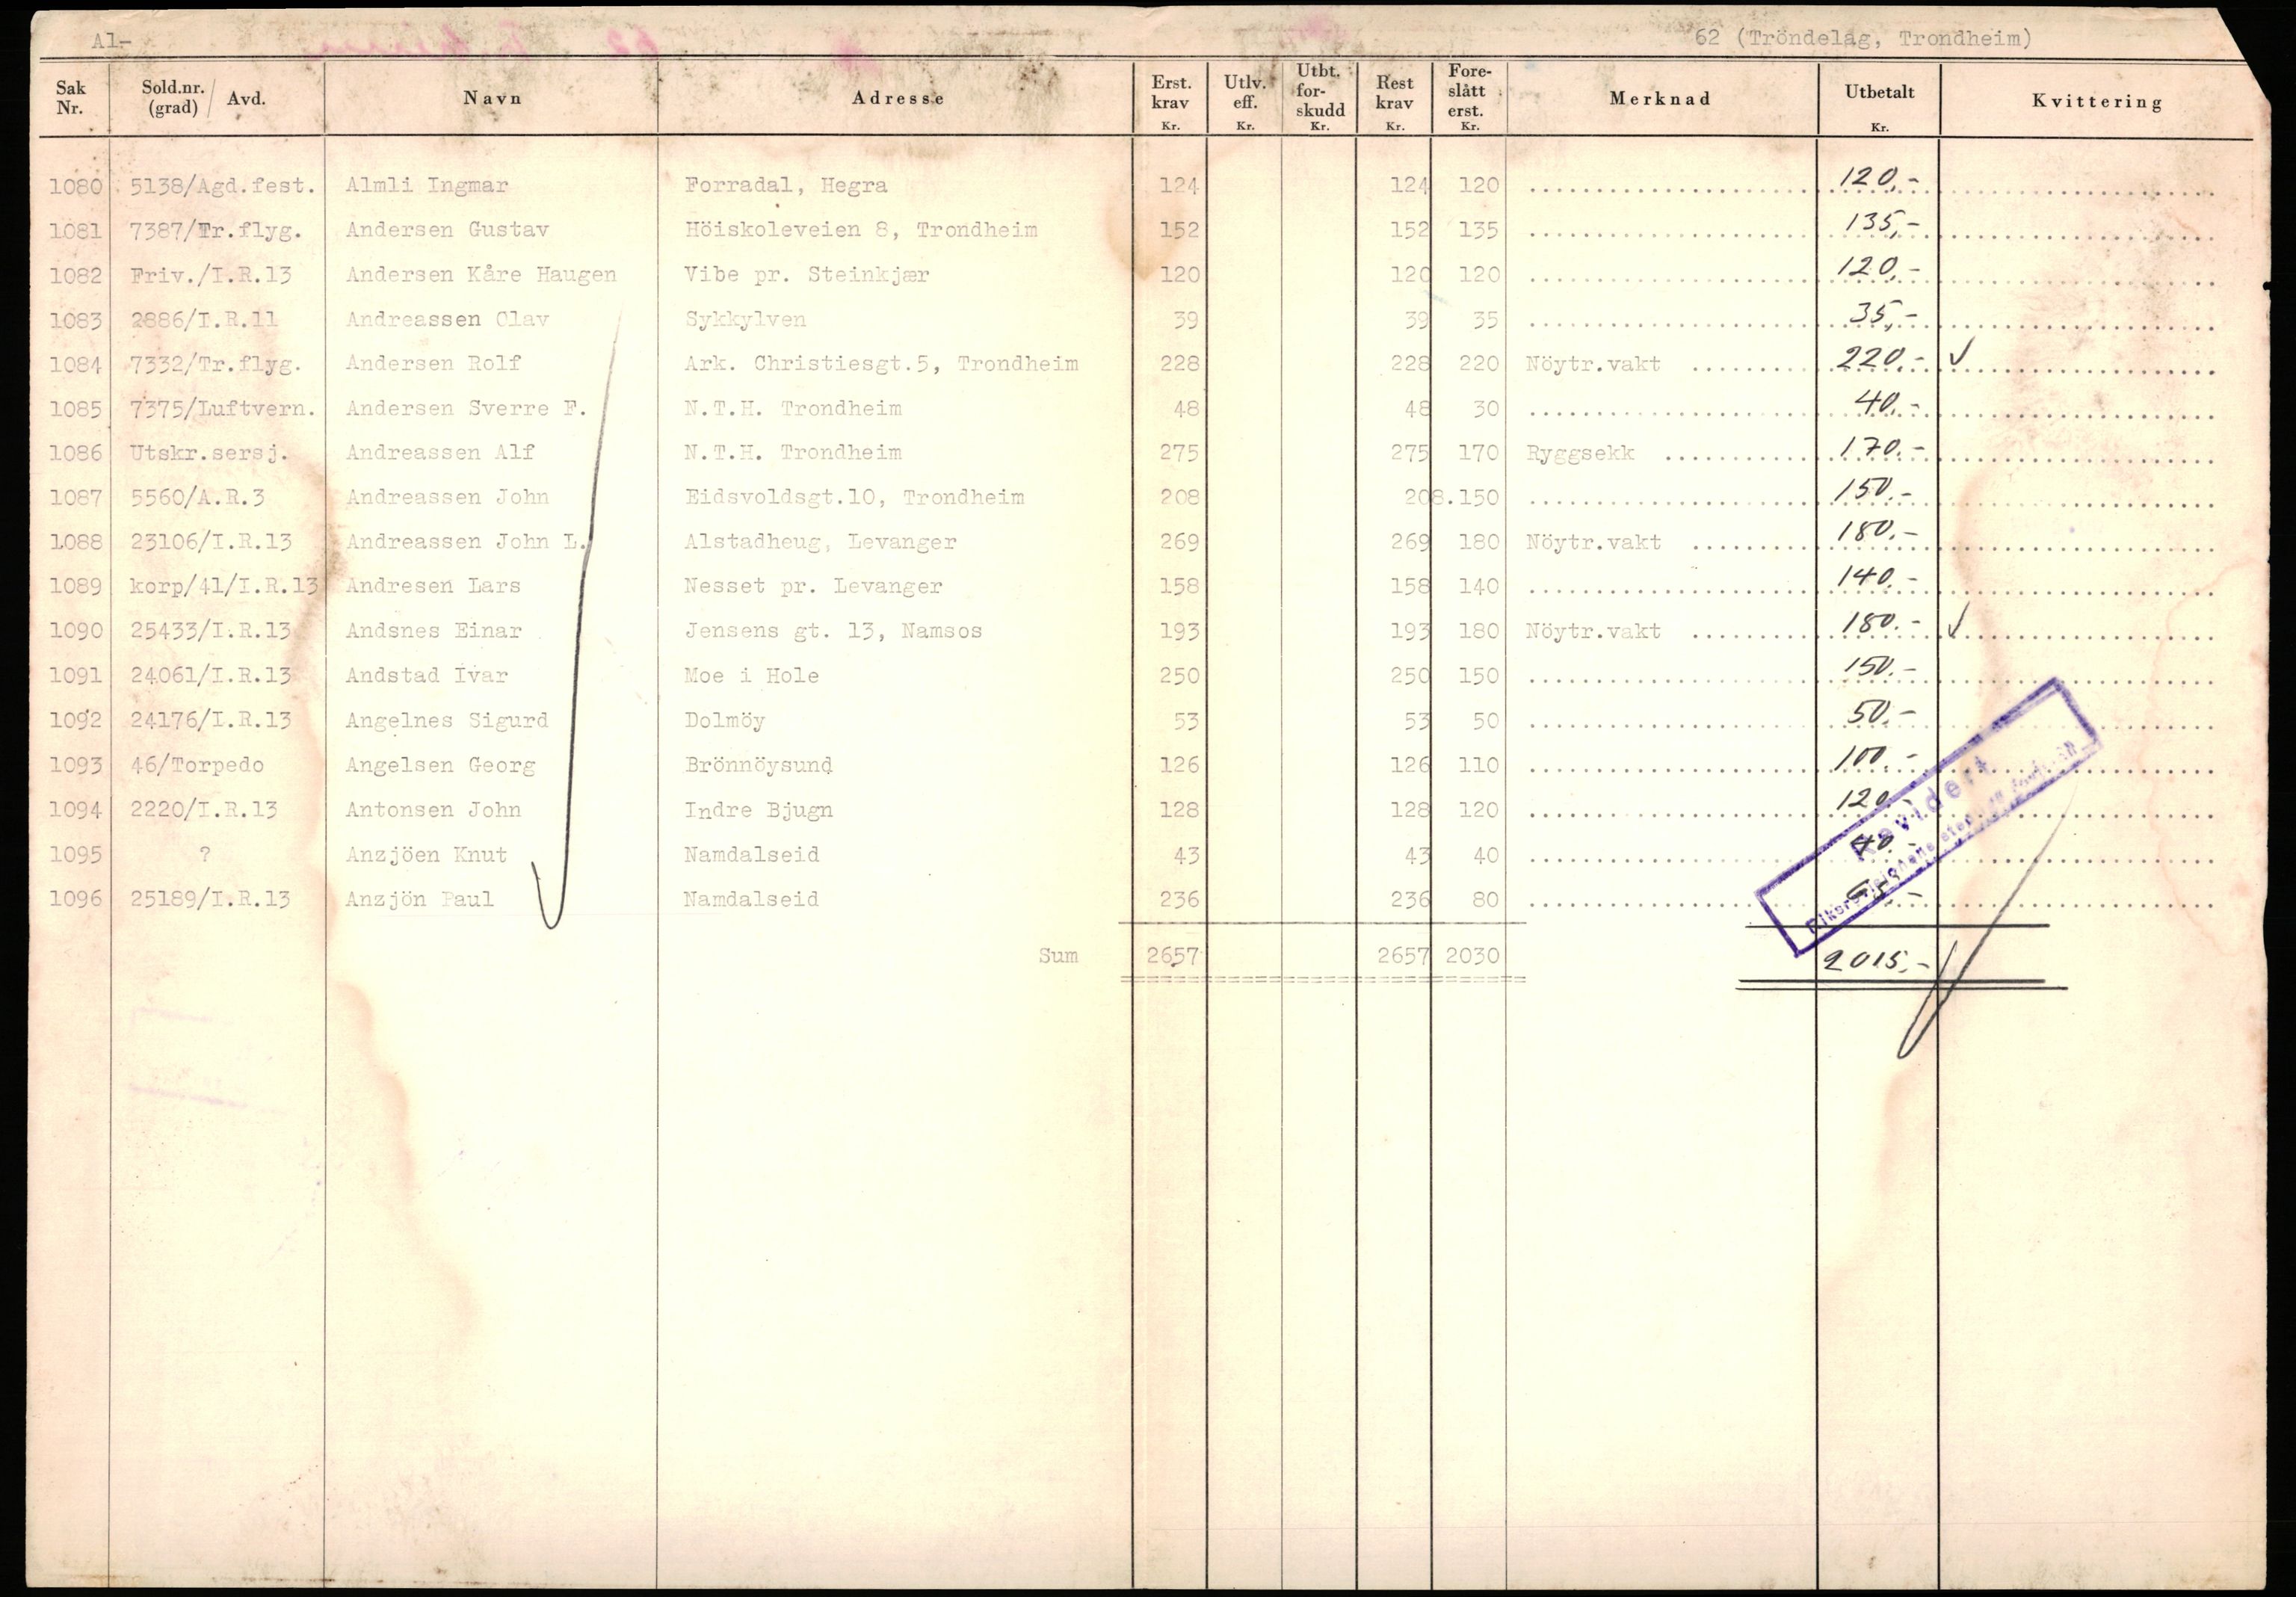 Al-
62 (Tröndelag, Trondheim)
Sak Nr. Sold.nr. (grad) / Avd. Navn Adresse Erst. krav Kr. Utlv. eff. Kr. Utbt. for- skudd Kr. Rest krav Kr. Fore- slått erst. Kr. Merknad Utbetalt Kr. Kvittering
1080 5138/Agd.fest. Almli Ingmar Forradal, Hegra 124 124 120 120.-
1081 7387/Tr.flyg. Andersen Gustav Höiskoleveien 8, Trondheim 152 152 135 135,-
1082 Friv./I.R.13 Andersen Kåre Haugen Vibe pr. Steinkjær 120 120 120 120.-
1083 2886/I.R.11 Andreassen Olav Sykkylven 39 39 35 35,-
1084 7332/Tr.flyg. Andersen Rolf Ark. Christiesgt.5, Trondheim 228 228 220 Nöytr.vakt 220.- ✓
1085 7375/Luftvern. Andersen Sverre F. N.T.H. Trondheim 48 48 30 40.-
1086 Utskr.sersj. Andreassen Alf N.T.H. Trondheim 275 275 170 Ryggsekk 170.-
1087 5560/A.R.3 Andreassen John Eidsvoldsgt.10, Trondheim 208 208.150 150.-
1088 23106/I.R.13 Andreassen John L. Alstadheug, Levanger 269 269 180 Nöytr.vakt 180.-
1089 korp/41/I.R.13 Andresen Lars Nesset pr. Levanger 158 158 140 140.-
1090 25433/I.R.13 Andsnes Einar Jensens gt. 13, Namsos 193 193 180 Nöytr.vakt 180.- ✓
1091 24061/I.R.13 Andstad Ivar Moe i Hole 250 250 150 150.-
1092 24176/I.R.13 Angelnes Sigurd Dolmöy 53 53 50 50.-
1093 46/Torpedo Angelsen Georg Brönnöysund 126 126 110 100.-
1094 2220/I.R.13 Antonsen John Indre Bjugn 128 128 120 120.-
1095 ? Anzjöen Knut Namdalseid 43 43 40 40.-
1096 25189/I.R.13 Anzjön Paul Namdalseid 236 236 80
Revidert
Sum 2657 2657 2030 2015.-